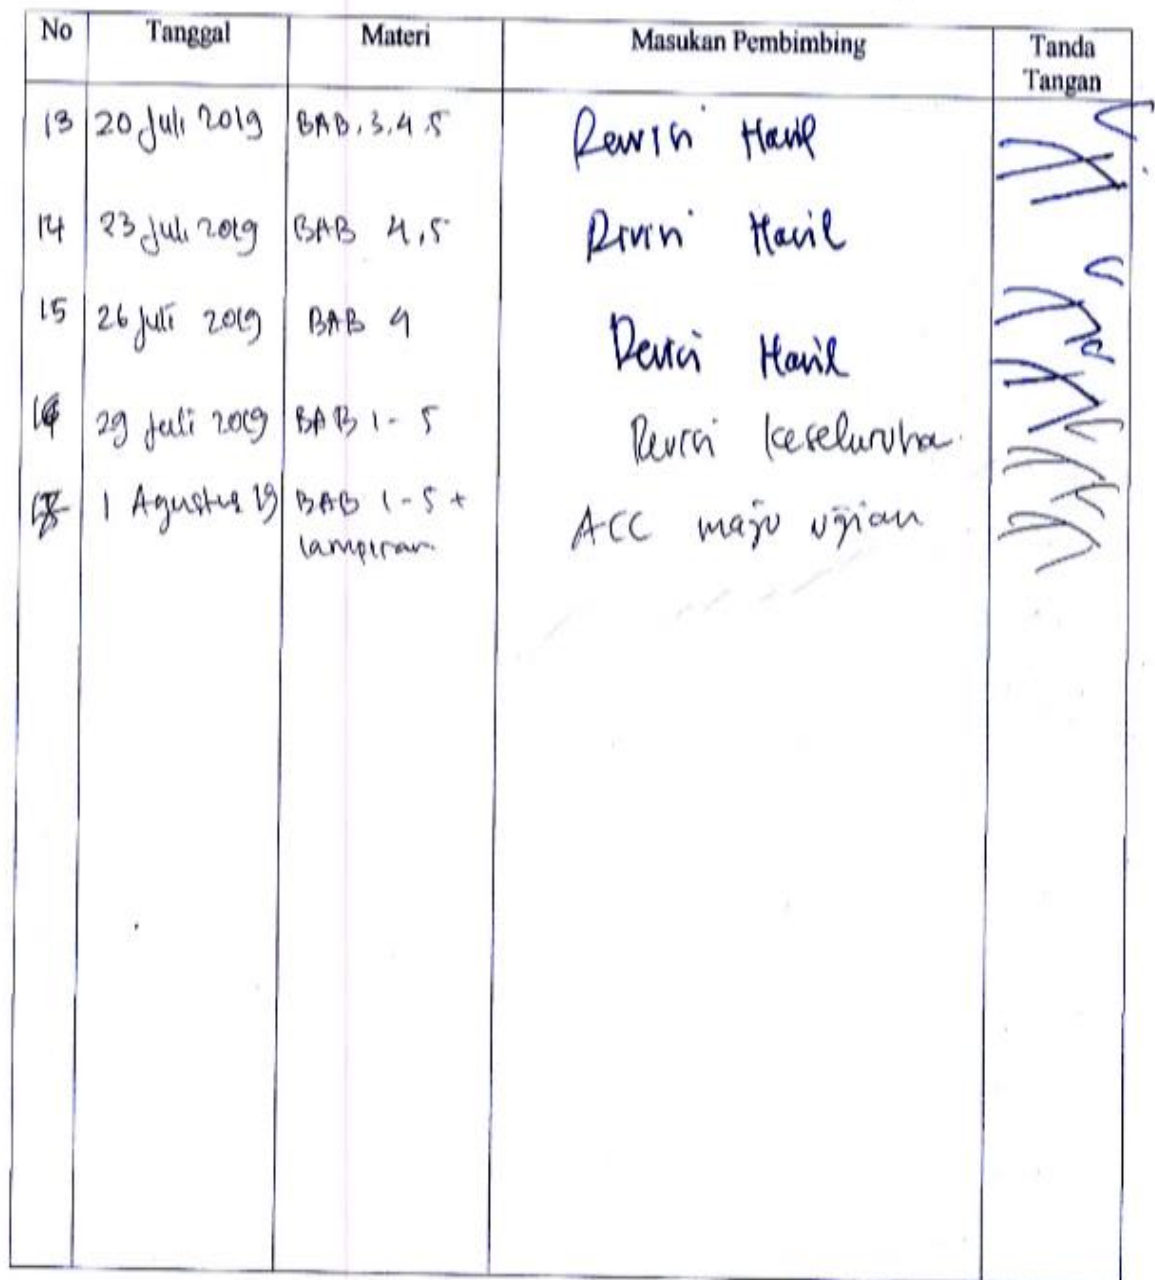 No Tanggal Materi Masukan Pembimbing Tanda
Tangan
13 20 Juli 2019 BAB. 3.4.5 Revisi Hasil
14 23 Juli 2019 BAB 4,5 Revisi Hasil
15 26 Juli 2019 BAB 4 Revisi Hasil
16 29 Juli 2019 BAB 1-5 Revisi keseluruha
1 Agustus 19 BAB 1-5 + ACC maju ujian
lampiran.